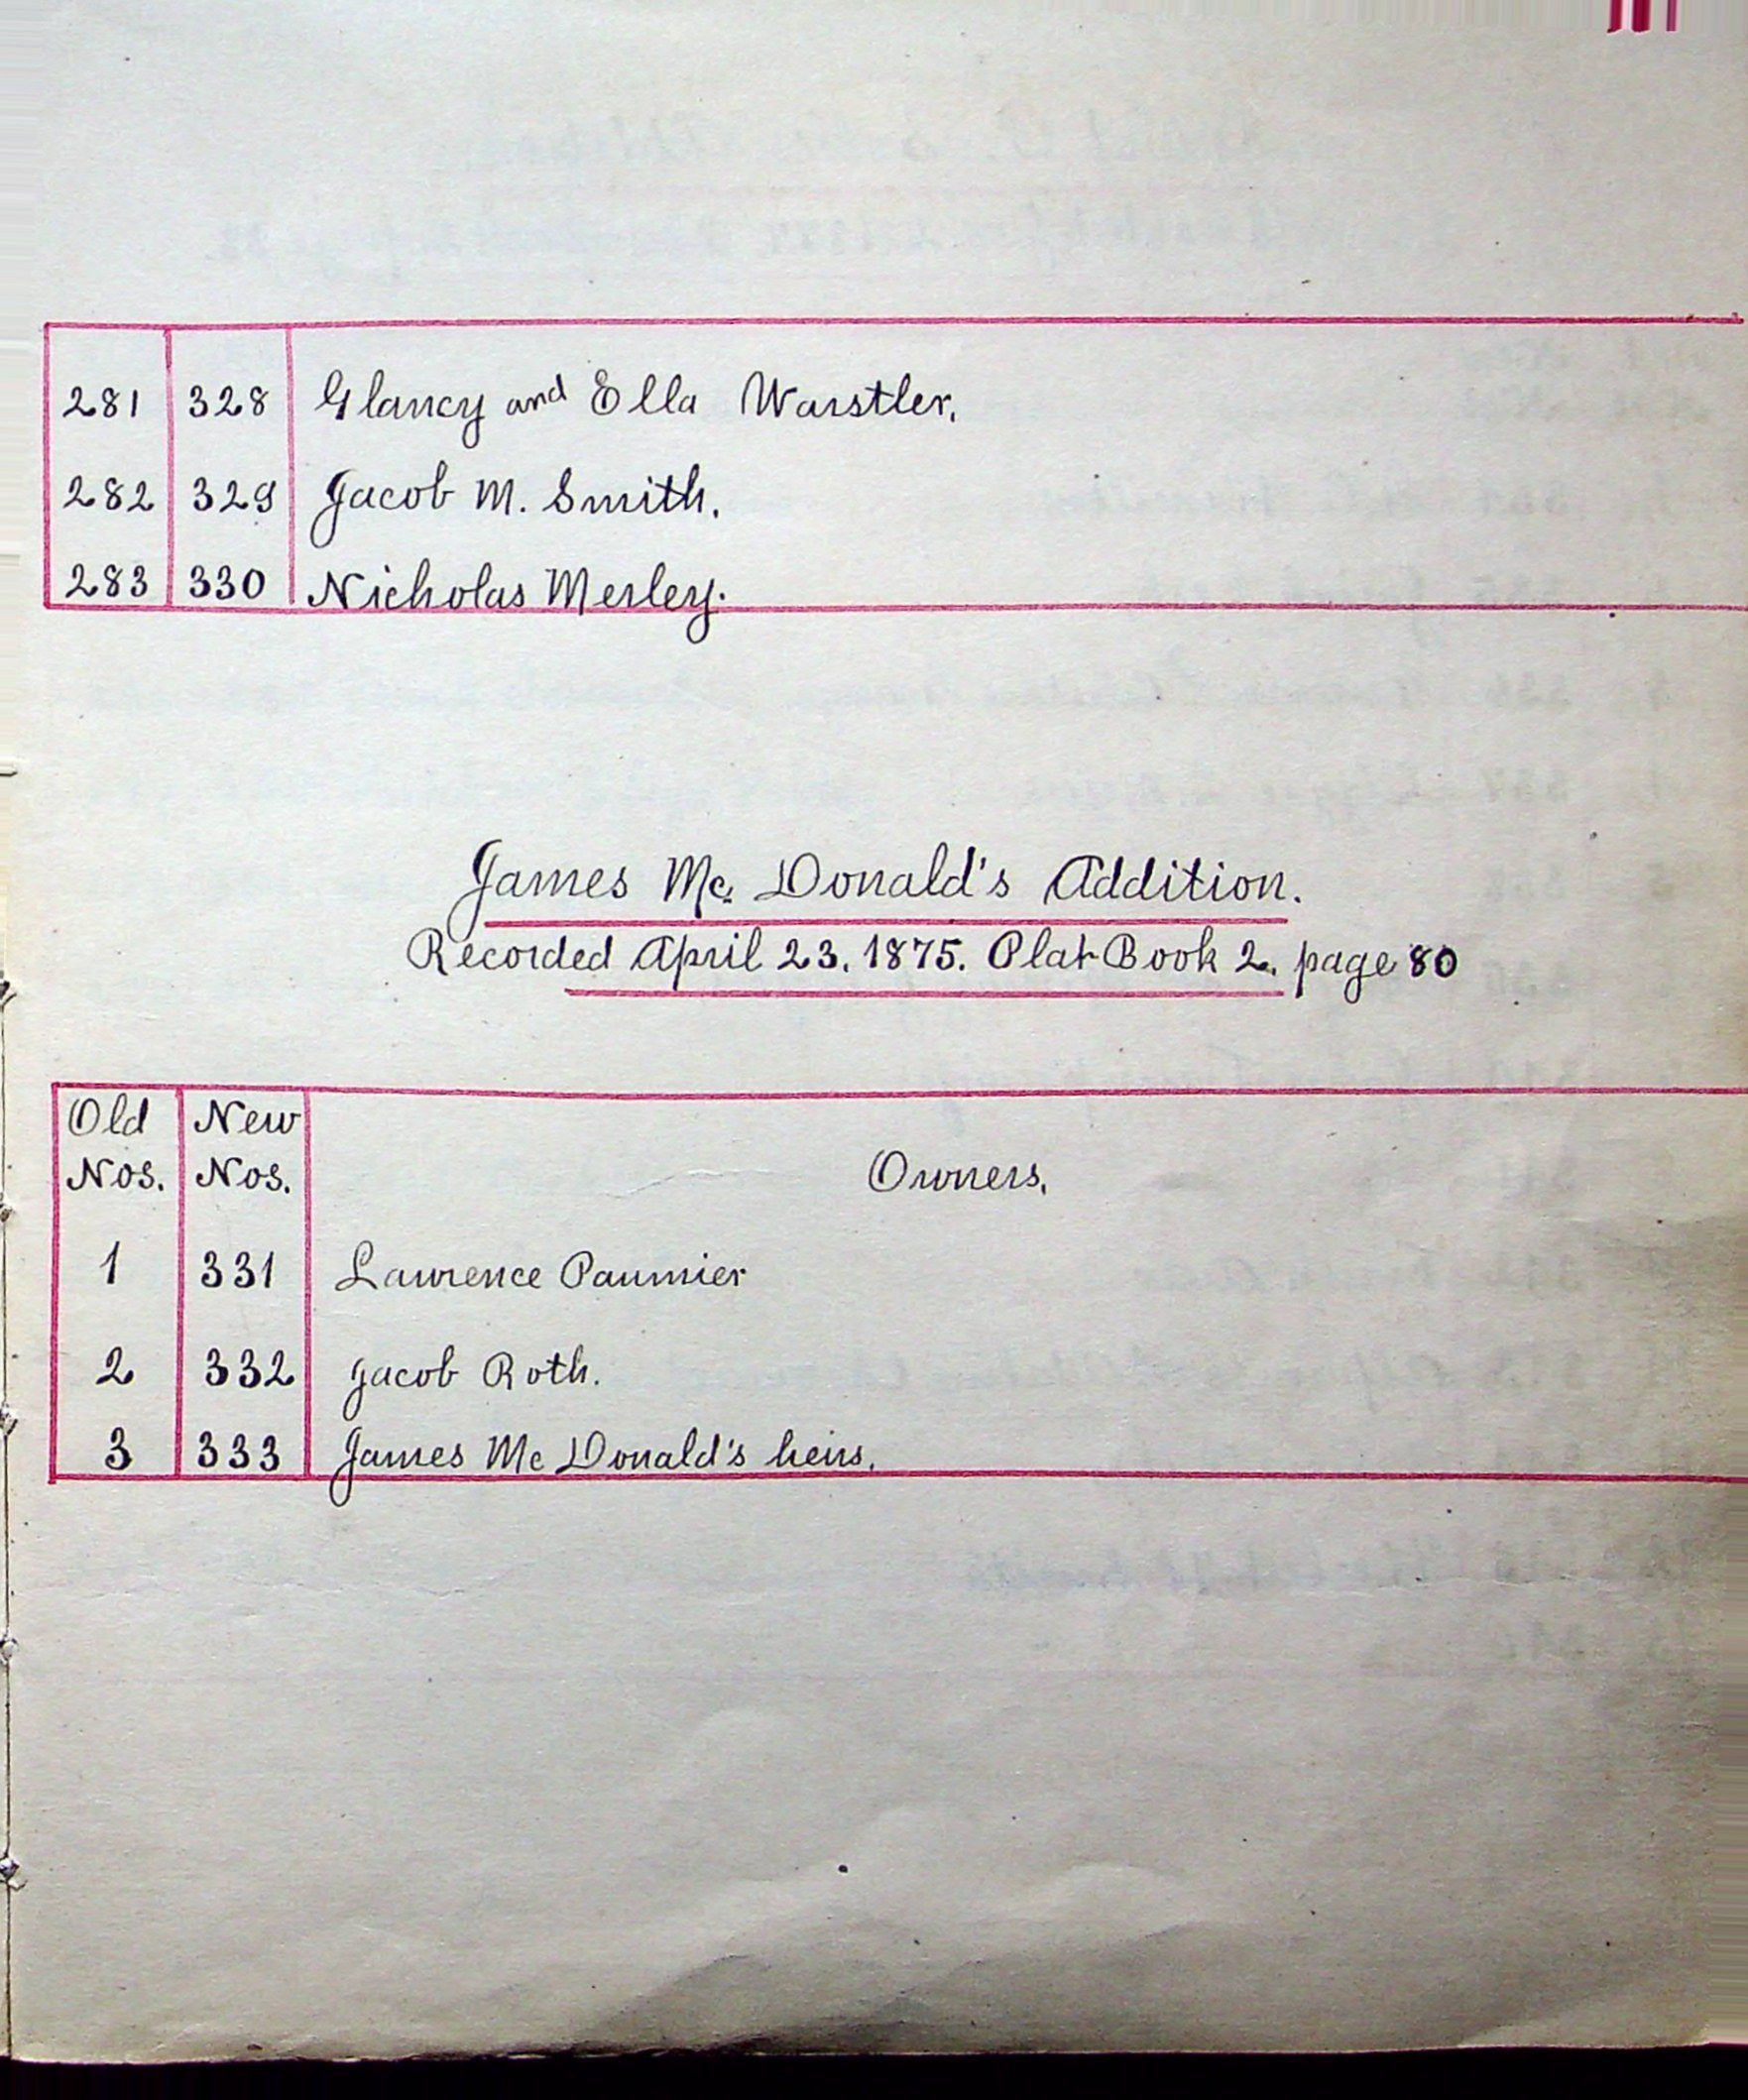 281 328 Glancy and Ella Warstler.
282 329 Jacob M. Smith.
283 330 Nicholas Merley.
James Mc. Donald's Addition.
Recorded April 23, 1875. Plat Book 2. page 80
Old New
Nos. Nos. Owners.
1 331 Lawrence Paumier
2 332 Jacob Roth.
3 333 James Mc Donald's heirs.